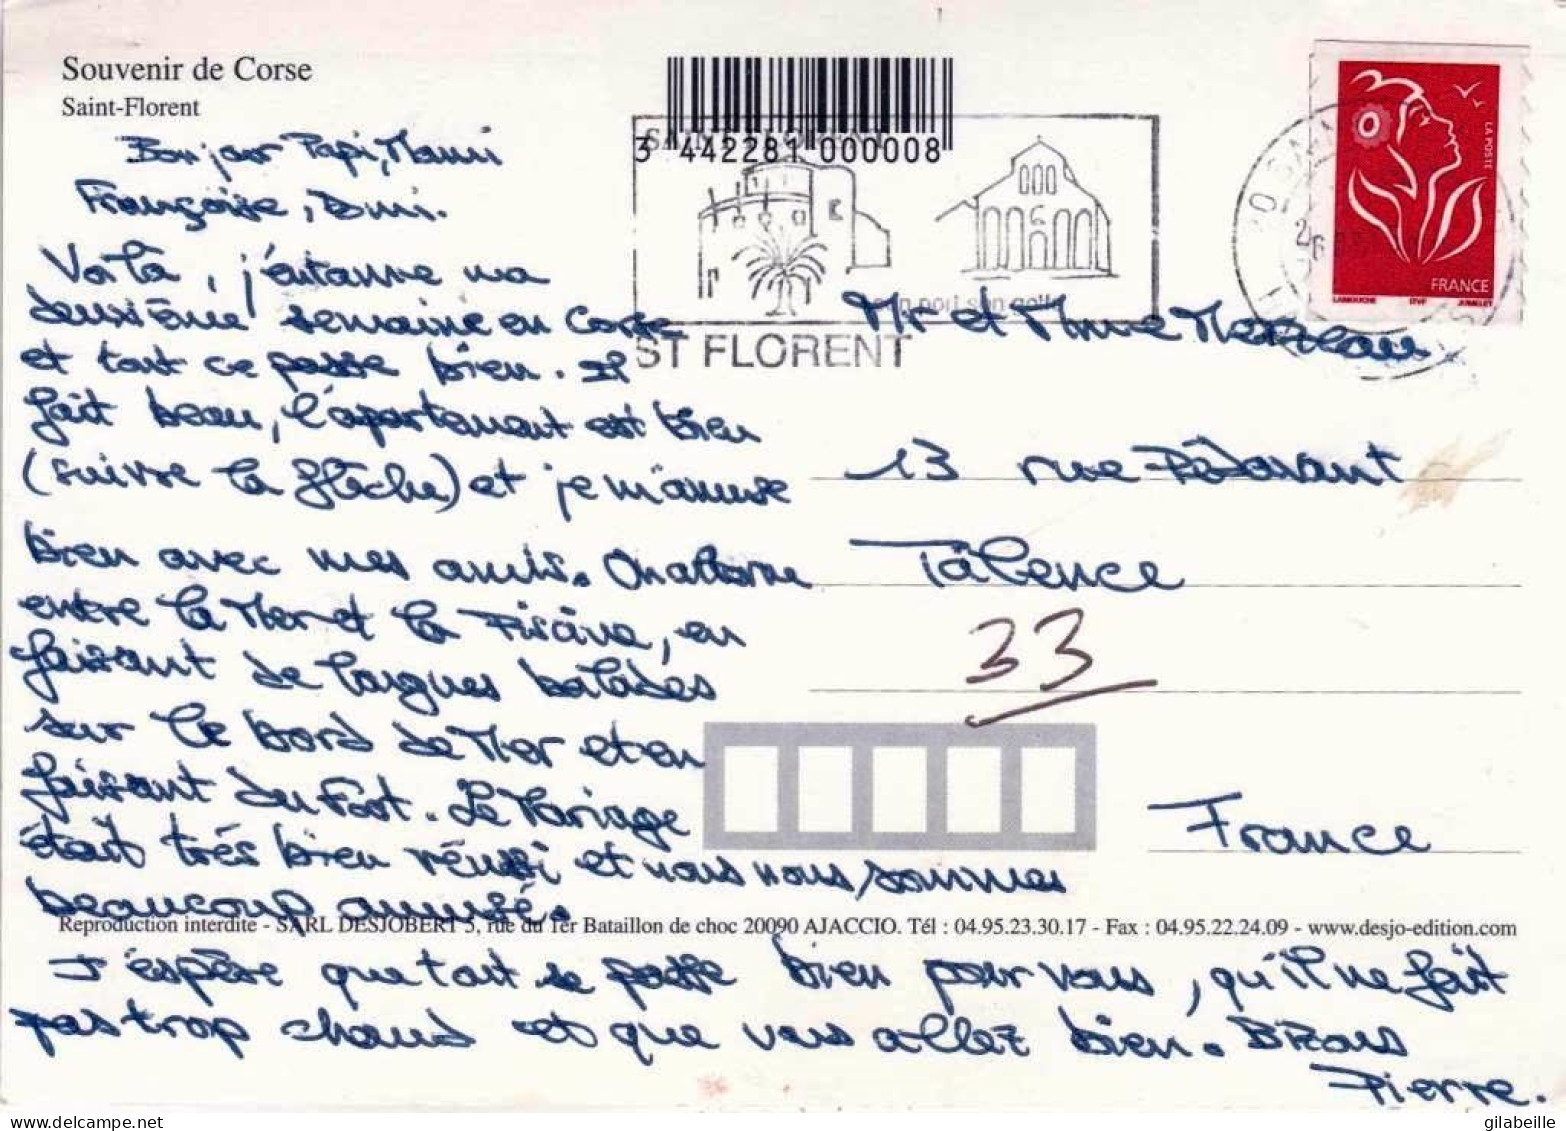 Souvenir de Corse
Saint-Florent
Bonjour Papi, Mami
Françoise, Domi.
Voilà, j'entamme ma
deuxième semaine en Corse
et tout ce passe bien. Il
fait beau, l'apartement est bien
(suivre la flèche) et je m'amuse
bien avec mes amis. On alterne
entre la Mer et la Piscine, en
faisant de longues balades
sur le bord de Mer et en
faisant du Foot. Le Mariage
était très bien réussi et nous nous sommes
beaucoup amusé.
J'espère que tout se passe bien pour vous, qu'il ne fait
pas trop chaud et que vous allez bien. Bisous
Pierre.
3 442281 000008
son port son golfe
ST FLORENT
LA POSTE
FRANCE
LAMOUCHE ITVF JUMELET
Mr et Mme
13 rue
Talence
33
France
Reproduction interdite - SARL DESJOBERT 5, rue du 1er Bataillon de choc 20090 AJACCIO. Tél : 04.95.23.30.17 - Fax : 04.95.22.24.09 - www.desjo-edition.com
gilabeille